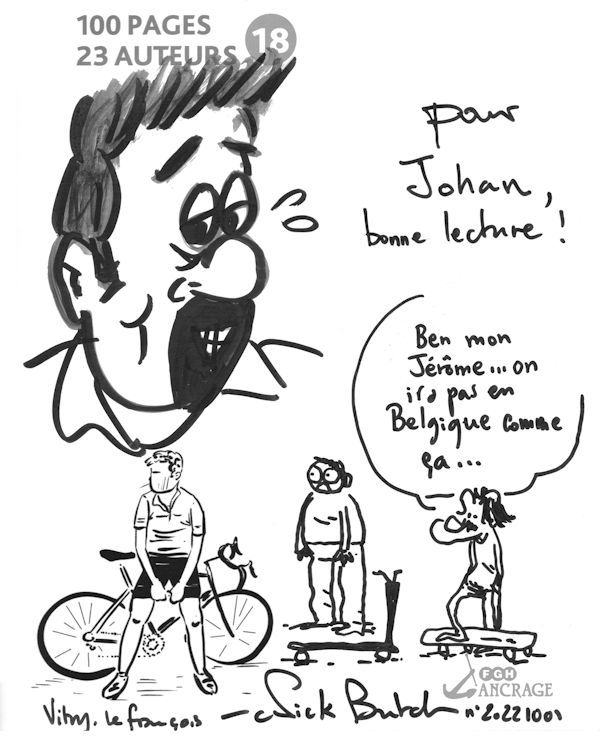 100 PAGES
23 AUTEURS 18
pour
Johan,
bonne lecture !
Ben mon
Jérôme... on
ira pas en
Belgique comme
ça...
FGH
ANCRAGE
Vitry. le françois
Sick Butch n°2.221001